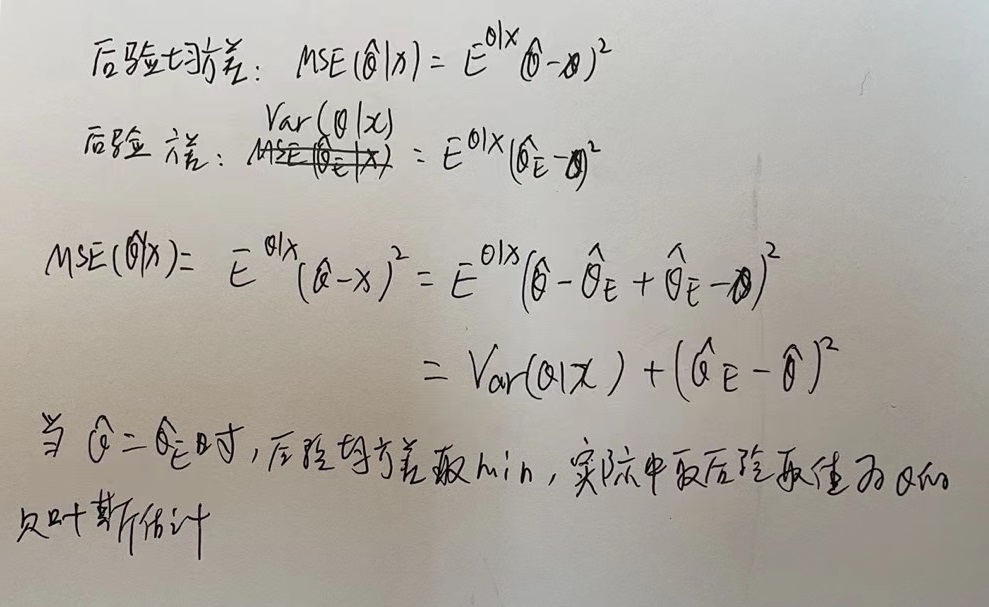 后验均方差: MSE(θ̂|x) = E^{θ|x}(θ̂-θ)²
Var(θ|x)
后验方差: = E^{θ|x}(θ̂_E-θ)²
MSE(θ̂|x)= E^{θ|x}(θ̂-x)² = E^{θ|x}(θ̂-θ̂_E+θ̂_E-θ)²
= Var(θ|x)+(θ̂_E-θ̂)²
当 θ̂=θ̂_E时,后验均方差取min,实际中取后验取值为θ的
贝叶斯估计